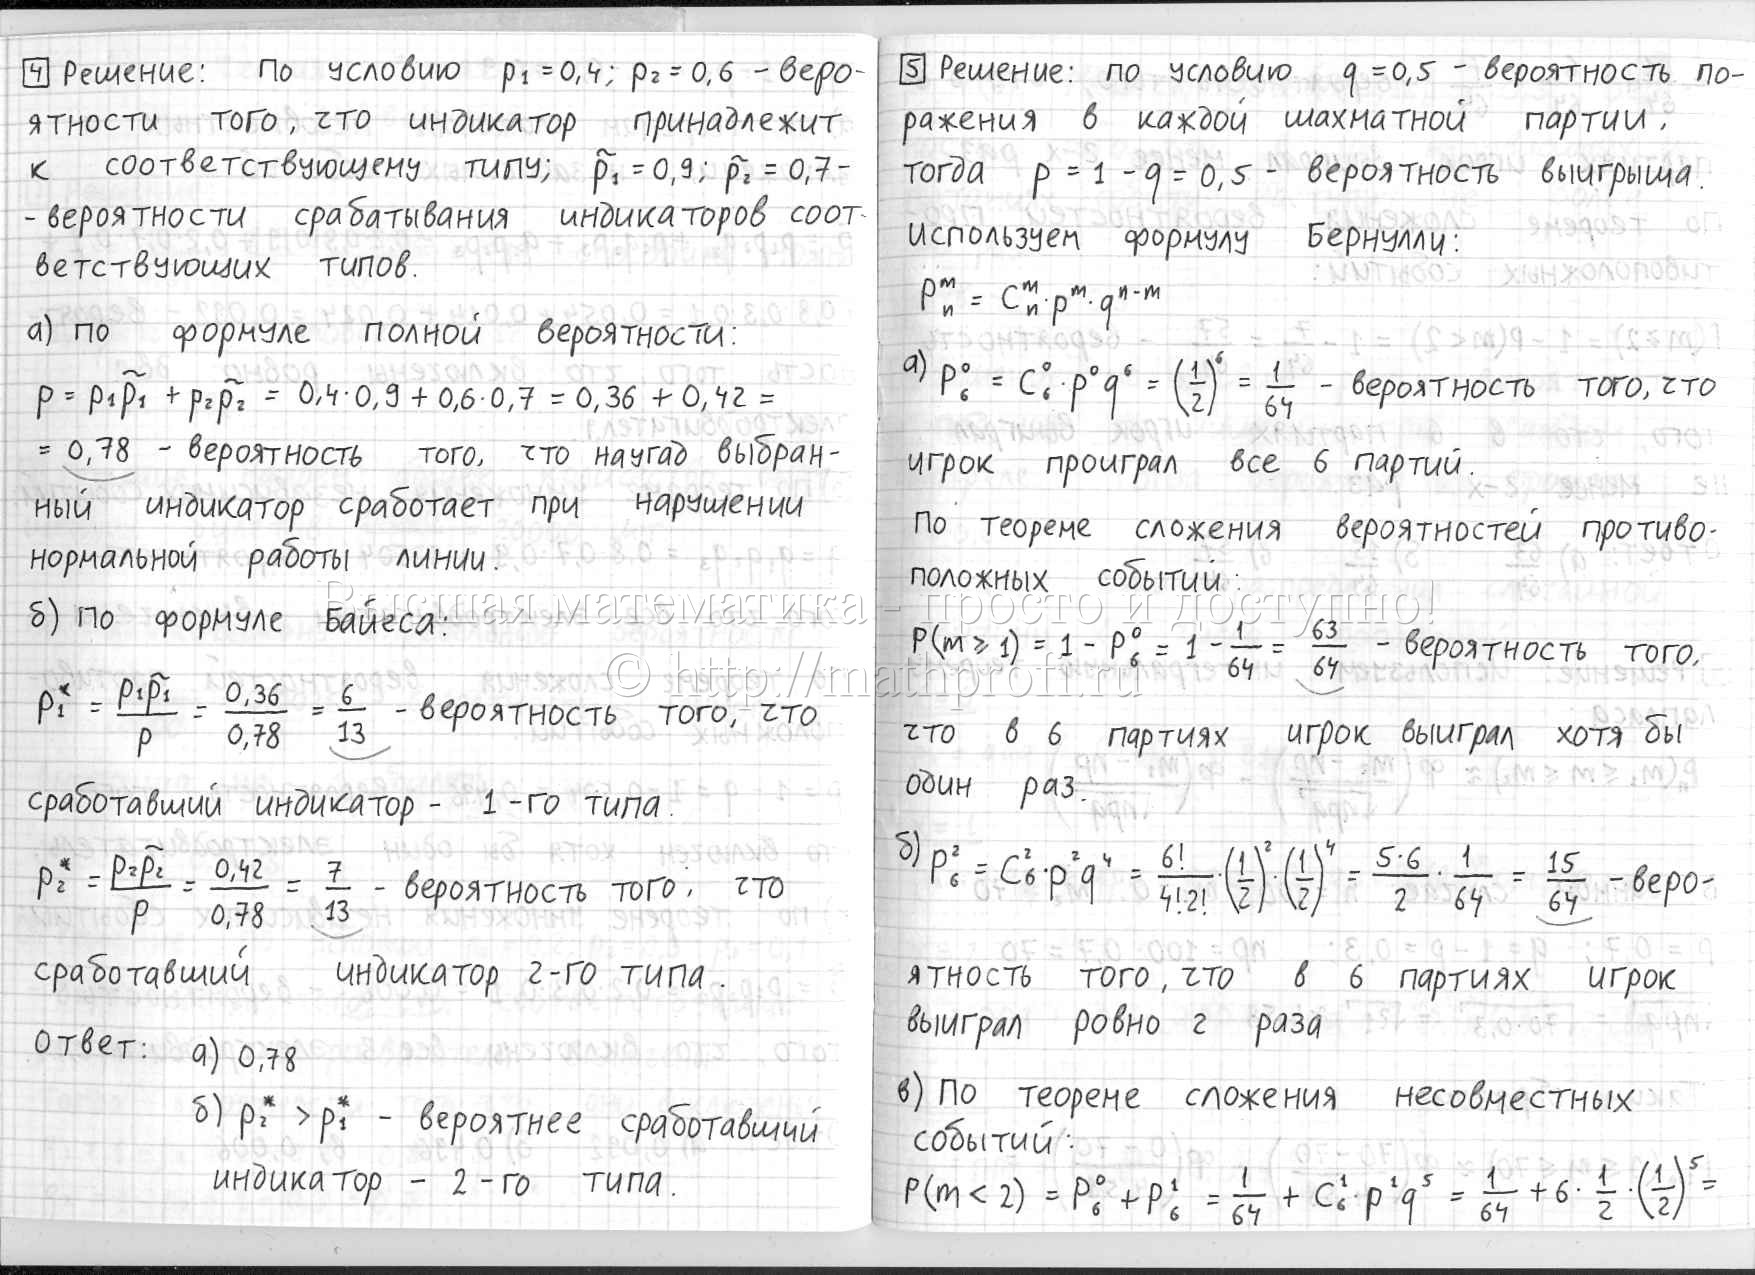 4 Решение: По условию p₁ = 0,4; p₂ = 0,6 – веро-
ятности того, что индикатор принадлежит
к соответствующему типу; p̃₁ = 0,9; p̃₂ = 0,7 –
- вероятности срабатывания индикаторов соот-
ветствующих типов.
а) По формуле полной вероятности:
p = p₁p̃₁ + p₂p̃₂ = 0,4·0,9 + 0,6·0,7 = 0,36 + 0,42 =
= 0,78 – вероятность того, что наугад выбран-
ный индикатор сработает при нарушении
нормальной работы линии.
б) По формуле Байеса:
p₁* = p₁p̃₁/p = 0,36/0,78 = 6/13 – вероятность того, что
сработавший индикатор – 1-го типа.
p₂* = p₂p̃₂/p = 0,42/0,78 = 7/13 – вероятность того, что
сработавший индикатор 2-го типа.
Ответ: а) 0,78
б) p₂* > p₁* – вероятнее сработавший
индикатор – 2-го типа.
5 Решение: по условию q = 0,5 – вероятность по-
ражения в каждой шахматной партии,
тогда p = 1 – q = 0,5 – вероятность выигрыша.
Используем формулу Бернулли:
Pₙᵐ = Cₙᵐ·pᵐ·qⁿ⁻ᵐ
а) P₆⁰ = C₆⁰·p⁰q⁶ = (1/2)⁶ = 1/64 – вероятность того, что
игрок проиграл все 6 партий.
По теореме сложения вероятностей противо-
положных событий:
P(m ≥ 1) = 1 – P₆⁰ = 1 – 1/64 = 63/64 – вероятность того,
что в 6 партиях игрок выиграл хотя бы
один раз.
б) P₆² = C₆²·p²q⁴ = 6!/4!·2!·(1/2)²·(1/2)⁴ = 5·6/2 · 1/64 = 15/64 – веро-
ятность того, что в 6 партиях игрок
выиграл ровно 2 раза
в) По теореме сложения несовместных
событий:
P(m < 2) = P₆⁰ + P₆¹ = 1/64 + C₆¹·p¹q⁵ = 1/64 + 6·1/2·(1/2)⁵ =
Высшая математика – просто и доступно!
© http://mathprofi.ru